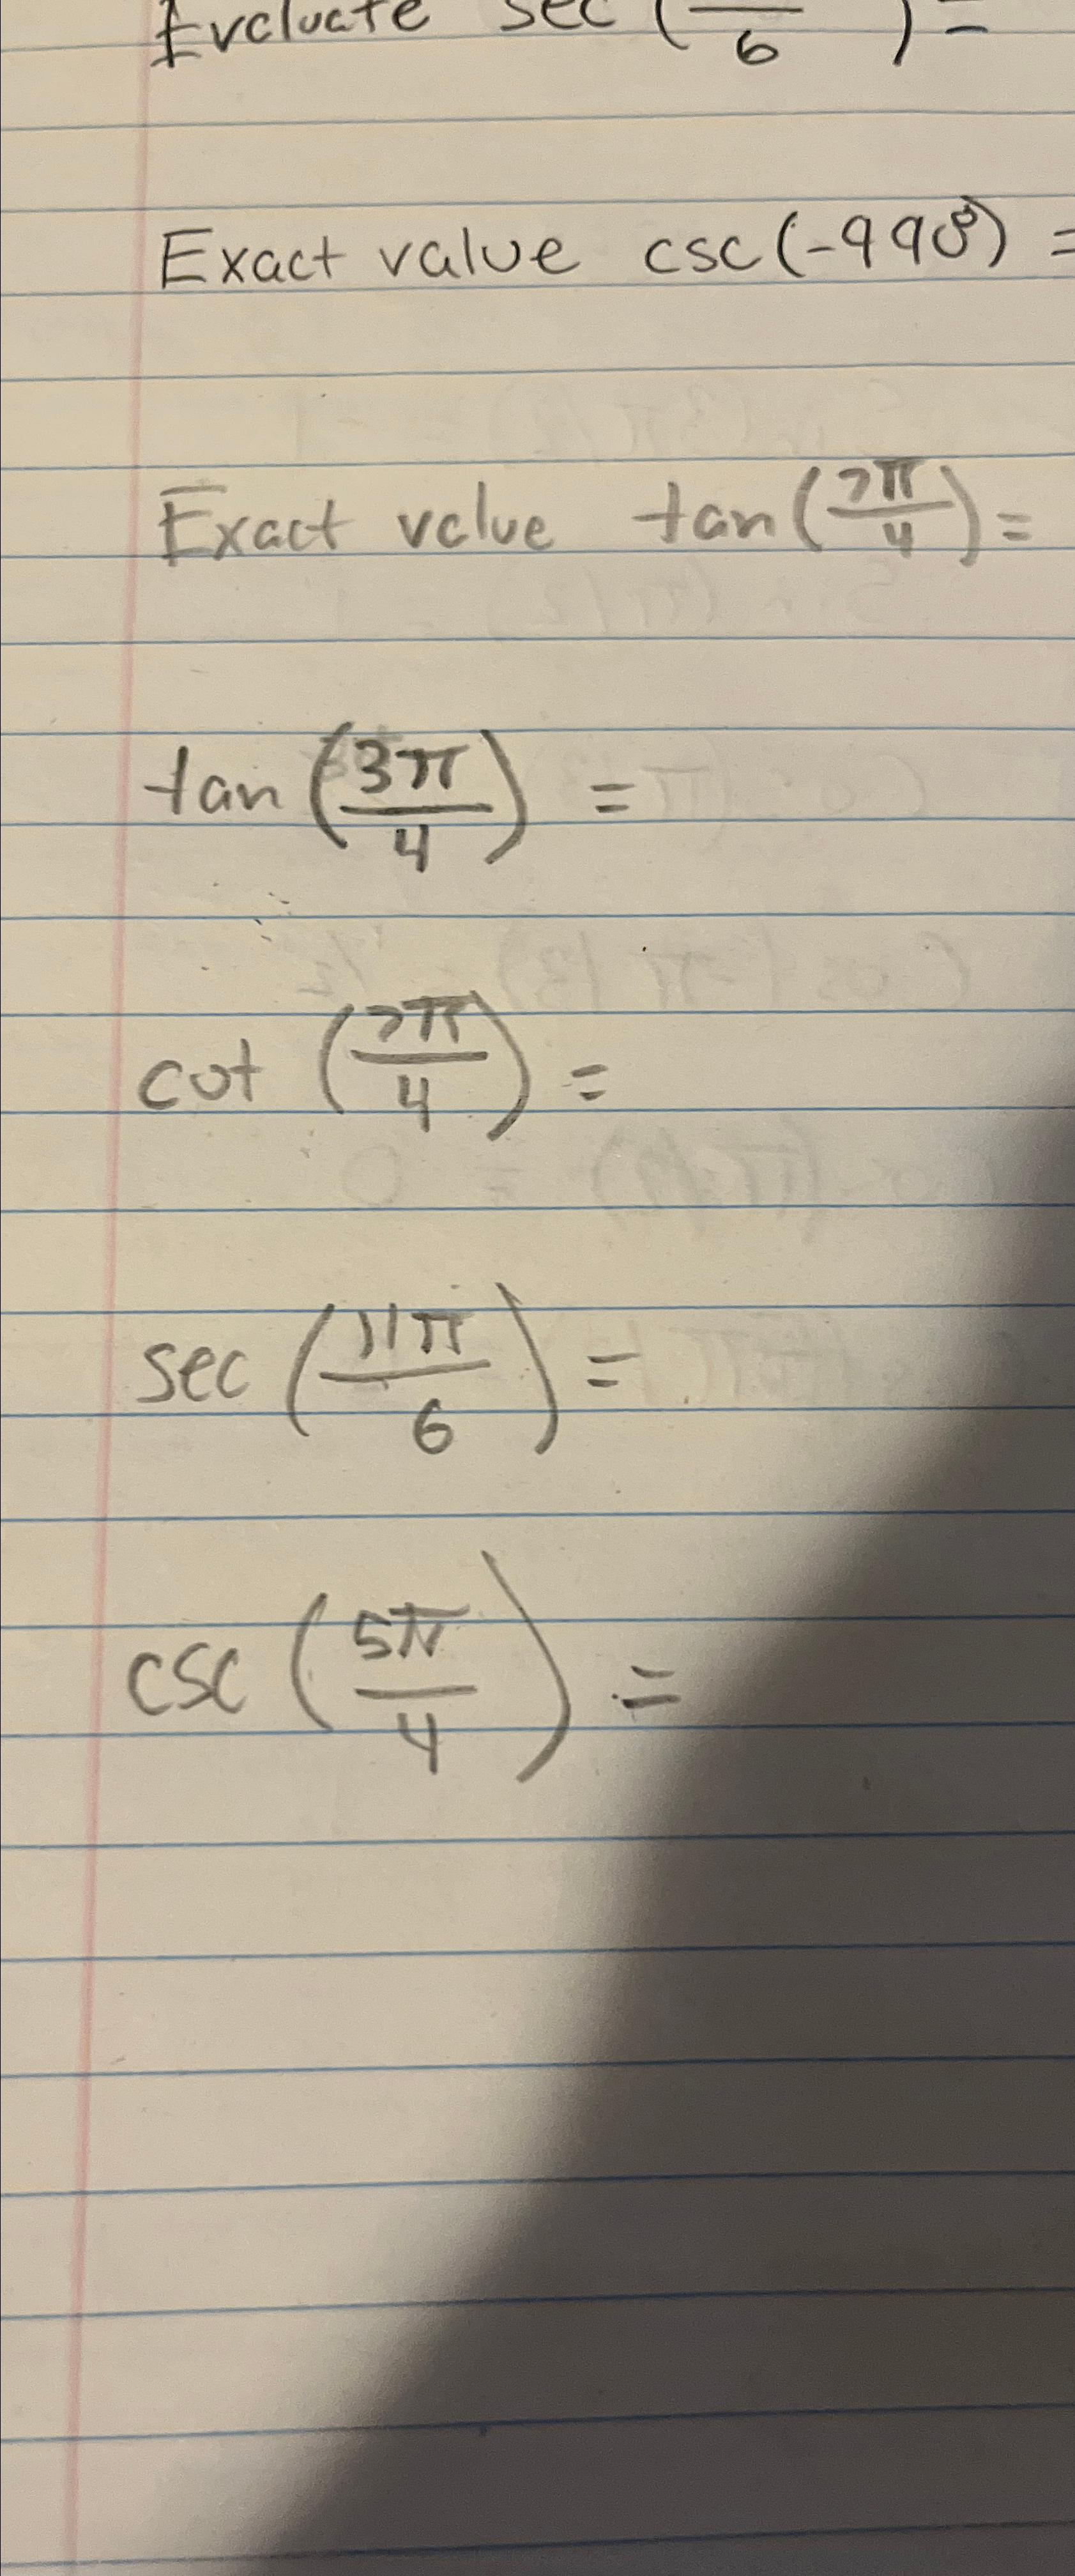 Evaluate sec ( /6 ) =
Exact value csc(-990°) =
Exact value tan(7π/4) =
tan (3π/4) =
cot (7π/4) =
sec (11π/6) =
csc (5π/4) =